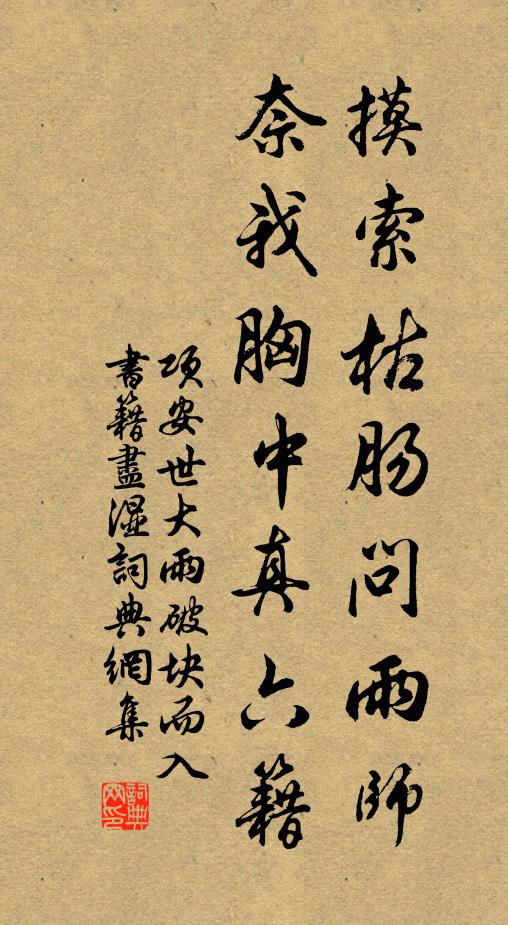 摸索枯肠问雨师
奈我胸中真六籍
项安世大雨破块而入
書籍盡濕詞典網集
詞典网印